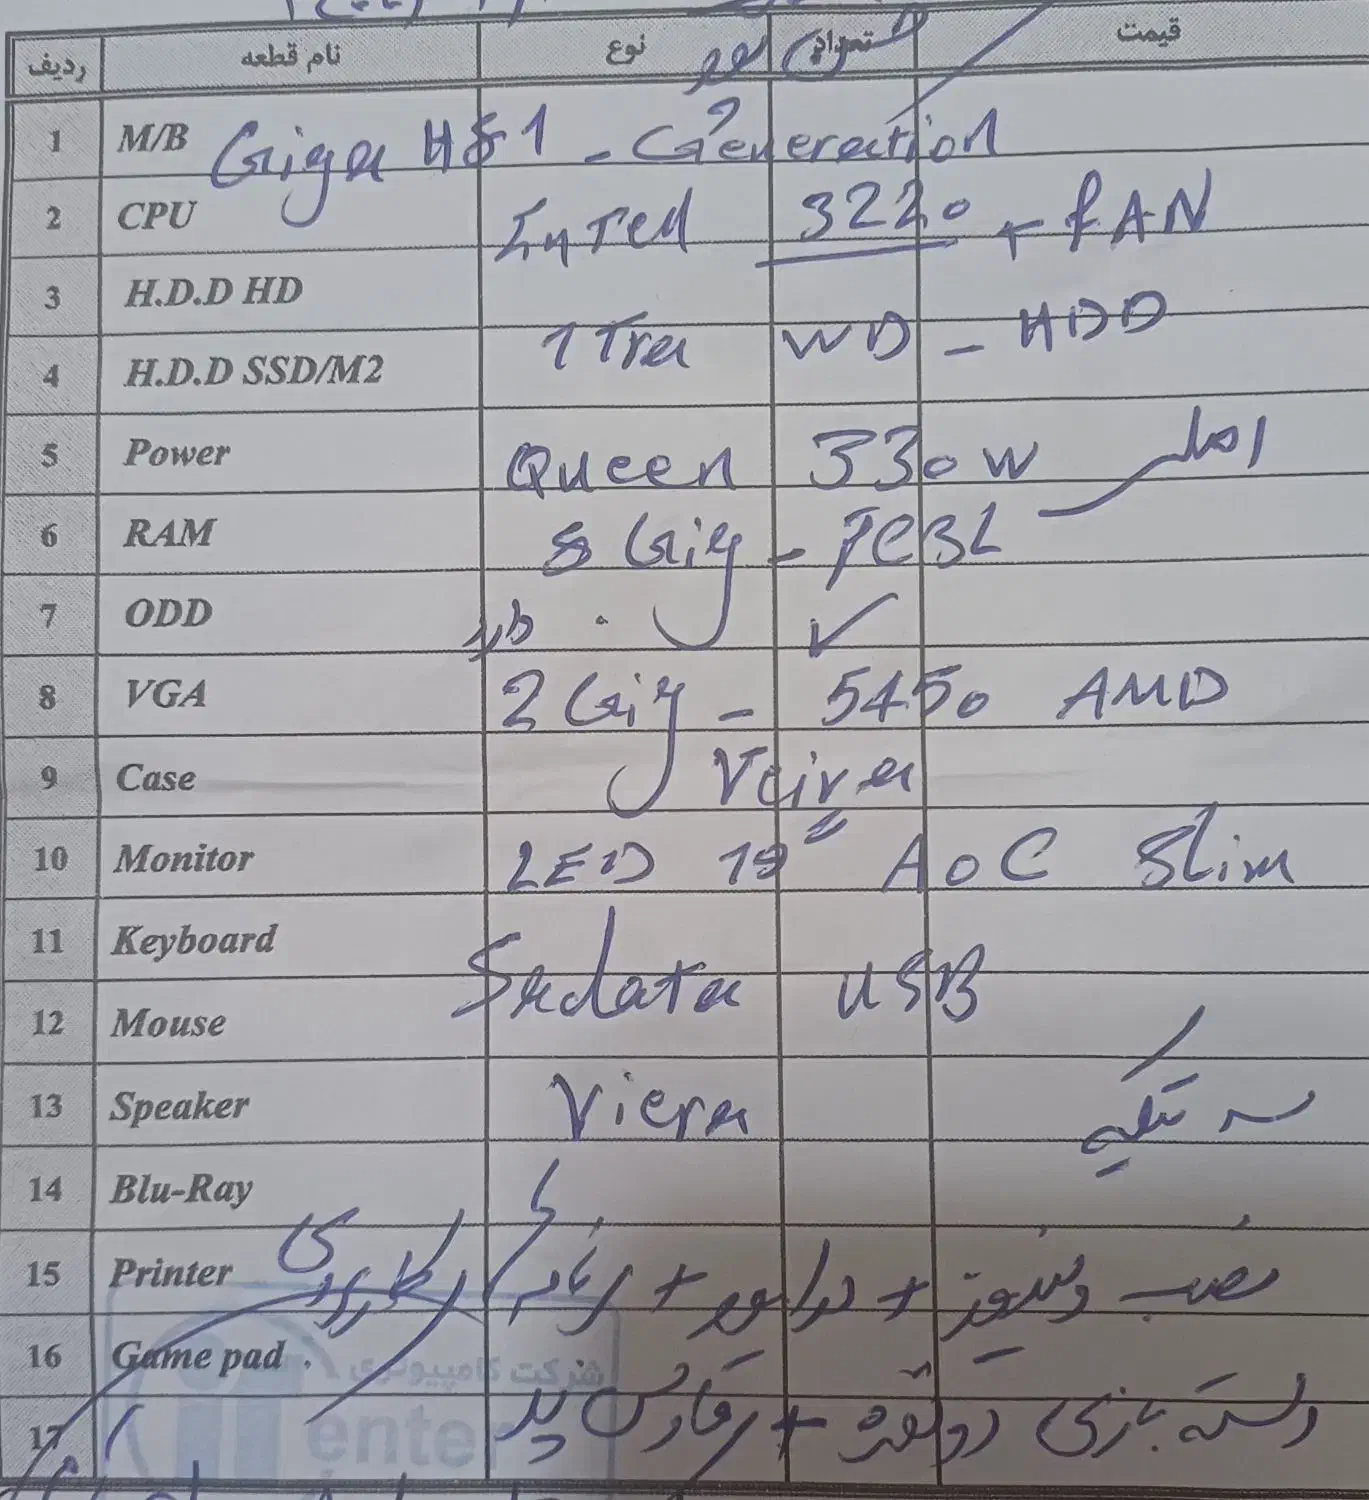 ردیف نام قطعه نوع تعداد قیمت
1 M/B Giga H81 - Generation
2 CPU Intel 3220 + FAN
3 H.D.D HD
1 Tra WD - HDD
4 H.D.D SSD/M2
5 Power Queen 330W اصلی
6 RAM 8 Gig - PC3L
7 ODD ✓
8 VGA 2 Gig - 5450 AMD
9 Case Veira
10 Monitor LED 19" AOC Slim
11 Keyboard
Sadata USB
12 Mouse
13 Speaker Viera سه تیکه
14 Blu-Ray
15 Printer نصب ویندوز + درایور + نرم افزار کاربردی
16 Game pad
شرکت کامپیوتری
17 دسته بازی دو نفره +
enter